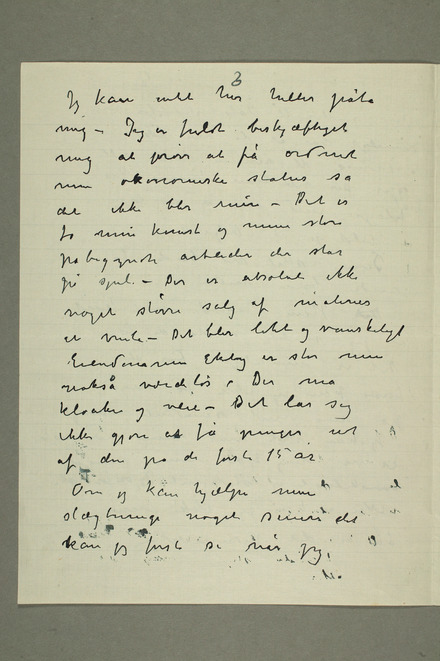 3
Jeg kan intet her heller påta
mig – Jeg er fuldt beskjæftiget
med at prøve at få ordnet
min økonomiske status så
det ikke blir min – Det er
jo min kunst og mine store
påbegynte arbeider der står
på spil. – Der er absolut ikke
noget større salg af malerier
at vente – Det blir lidt og vanskeligt
Eiendommen Ekely er stor men
også værdiløs. Der må
kloaker og veie – Det lar sig
ikke gjøre at få penger ud
af den på de første 15 år
Om jeg kan hjælpe mine
slægtninge noget senere det
kan jeg først se når jeg